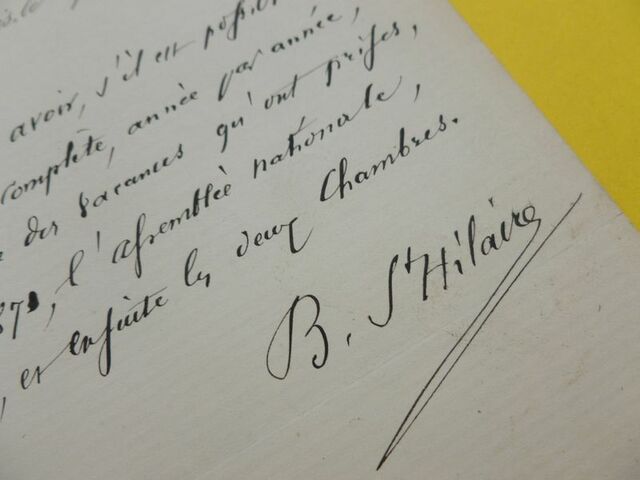 avoir, s'il est possi
complète, année par année,
des vacances qu'ont prises,
187, l'assemblée nationale,
, et ensuite les deux Chambres.
B. St Hilaire